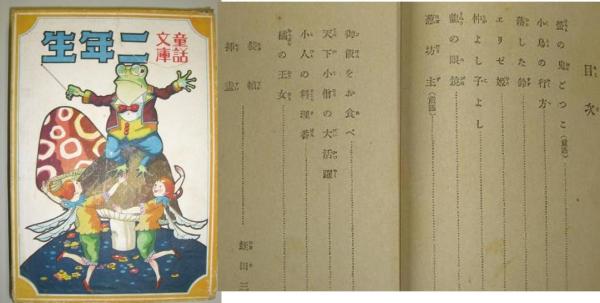 童話
文庫
二年生
目次
螢の鬼ごつこ(童謠)
小鳥の行方
落した鈴
エリゼ姫
仲よし子よし
龍の眼鏡
葱坊主(童謠)
御飯をお食べ
天下小僧の大活躍
小人の料理番
橘の王女
裝幀
插畫
蛭田三